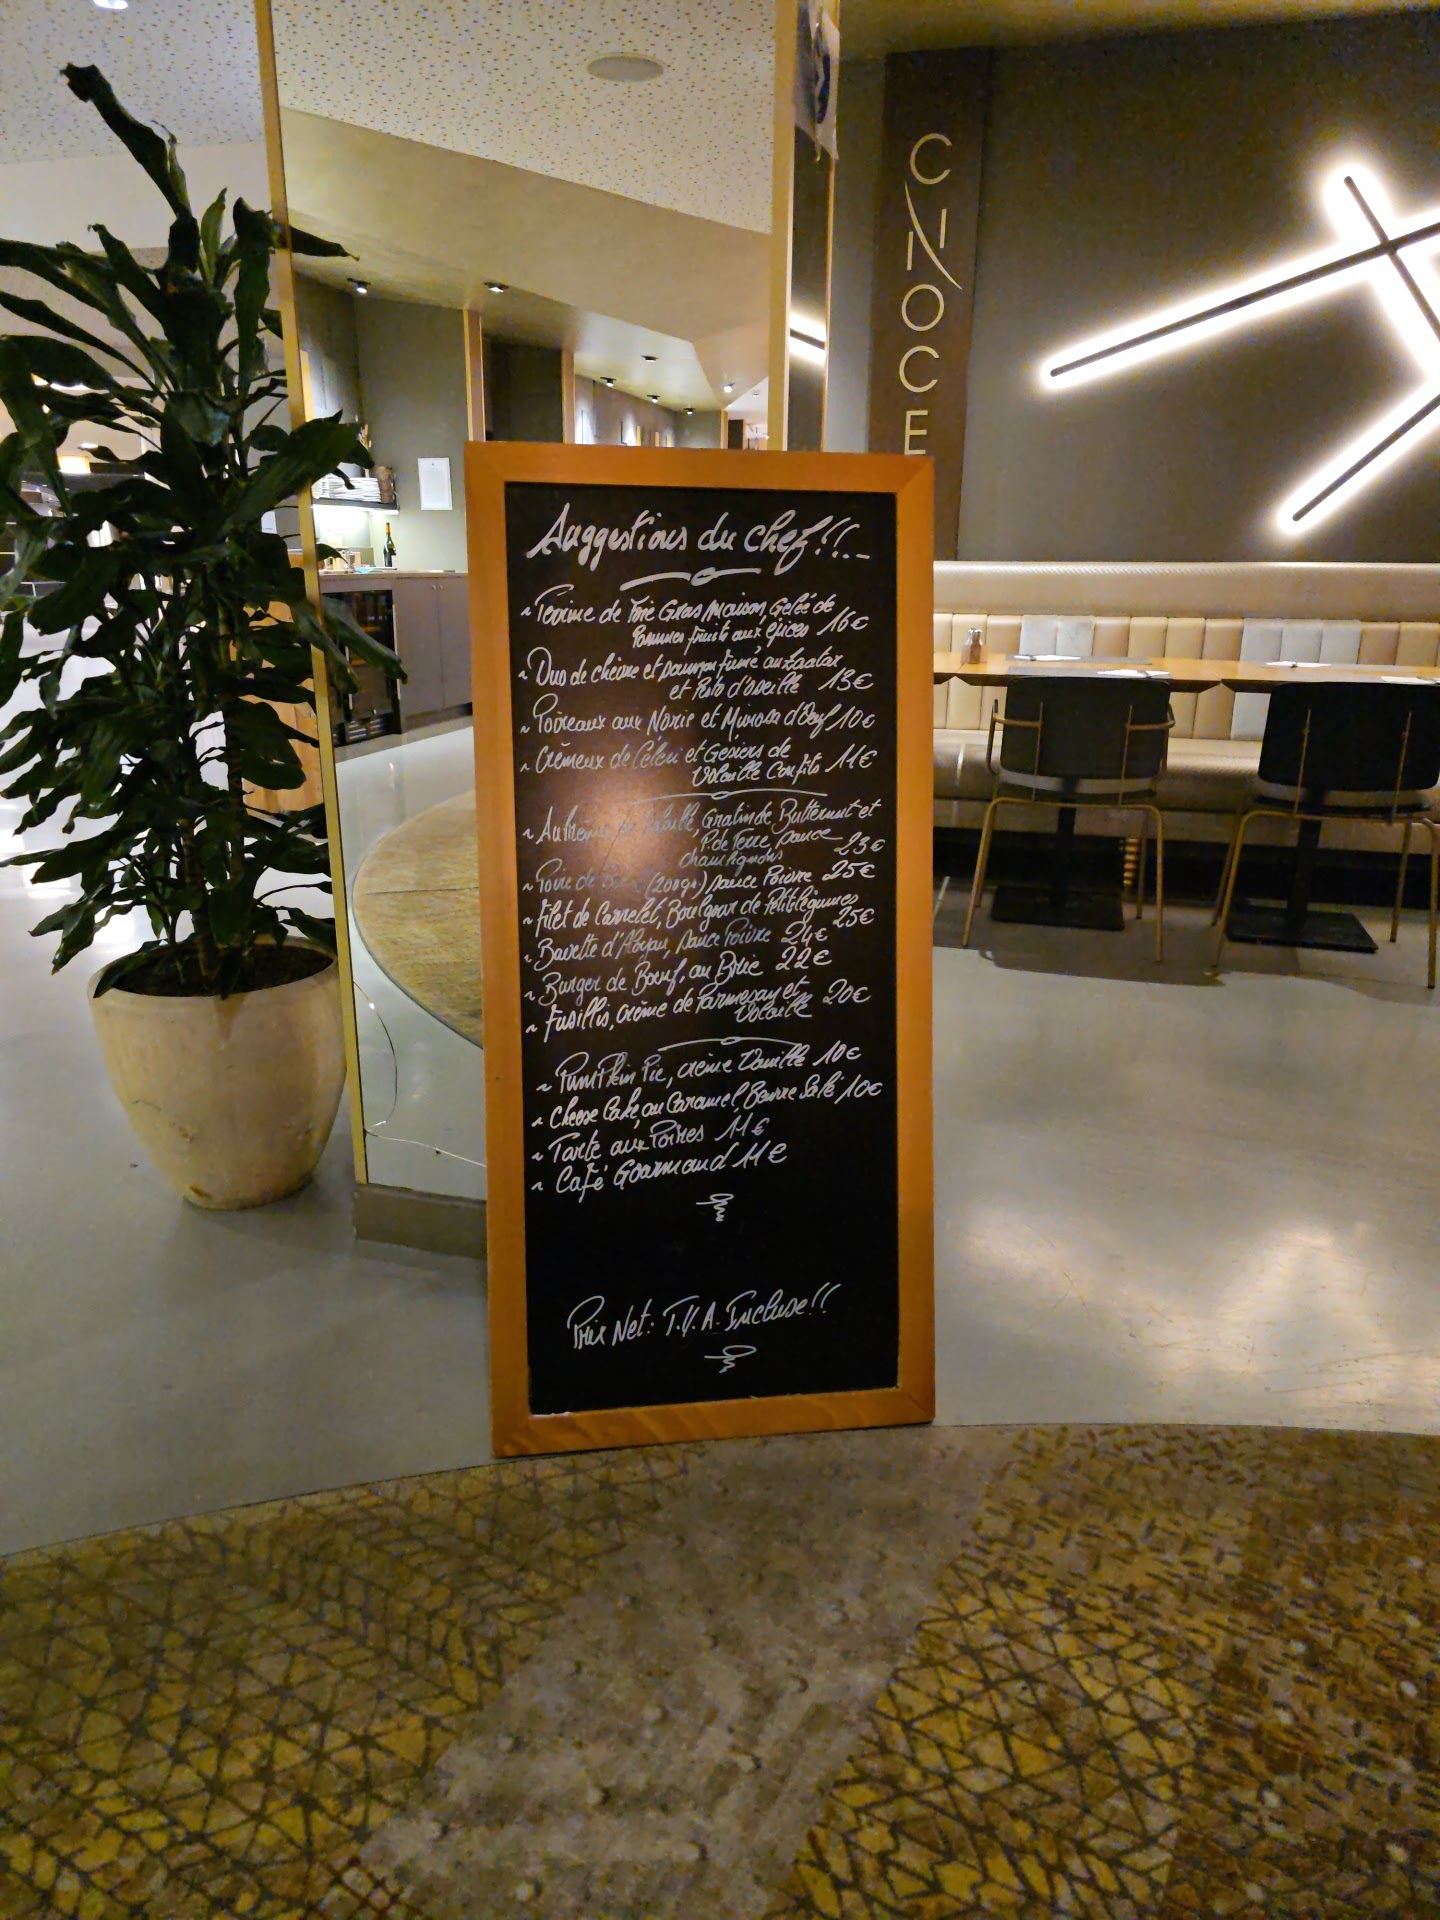 CINOCE
Suggestions du chef!!
~ Terrine de Foie Gras maison, Gelée de
Pommes fruits aux épices 16€
~ Duo de chèvre et saumon fumé au Zaatar
et Pesto d'oseille 13€
~ Poireaux aux Noris et Mimosa d'Oeuf 10€
~ Crémeux de Céleri et Gesiers de
Volaille Confits 11€
~ Volaille, Gratin de Butternut et
P. de Terre, sauce
champignons 23€
~ Poire de (200gr) sauce Poivre 25€
~ Filet de Carrelet, Boulgour de Petits légumes
25€
~ Bavette d'Aloyau, sauce Poivre 24€
~ Burger de Boeuf, au Brie 22€
~ Fusillis, crème de Parmesan et
Volaille 20€
~ PumPkin Pie, crème Vanille 10€
~ Cheese Cake, au Caramel Beurre Salé 10€
~ Tarte aux Poires 11€
~ Café Gourmand 11€
Prix Net: T.V.A. Incluse!!